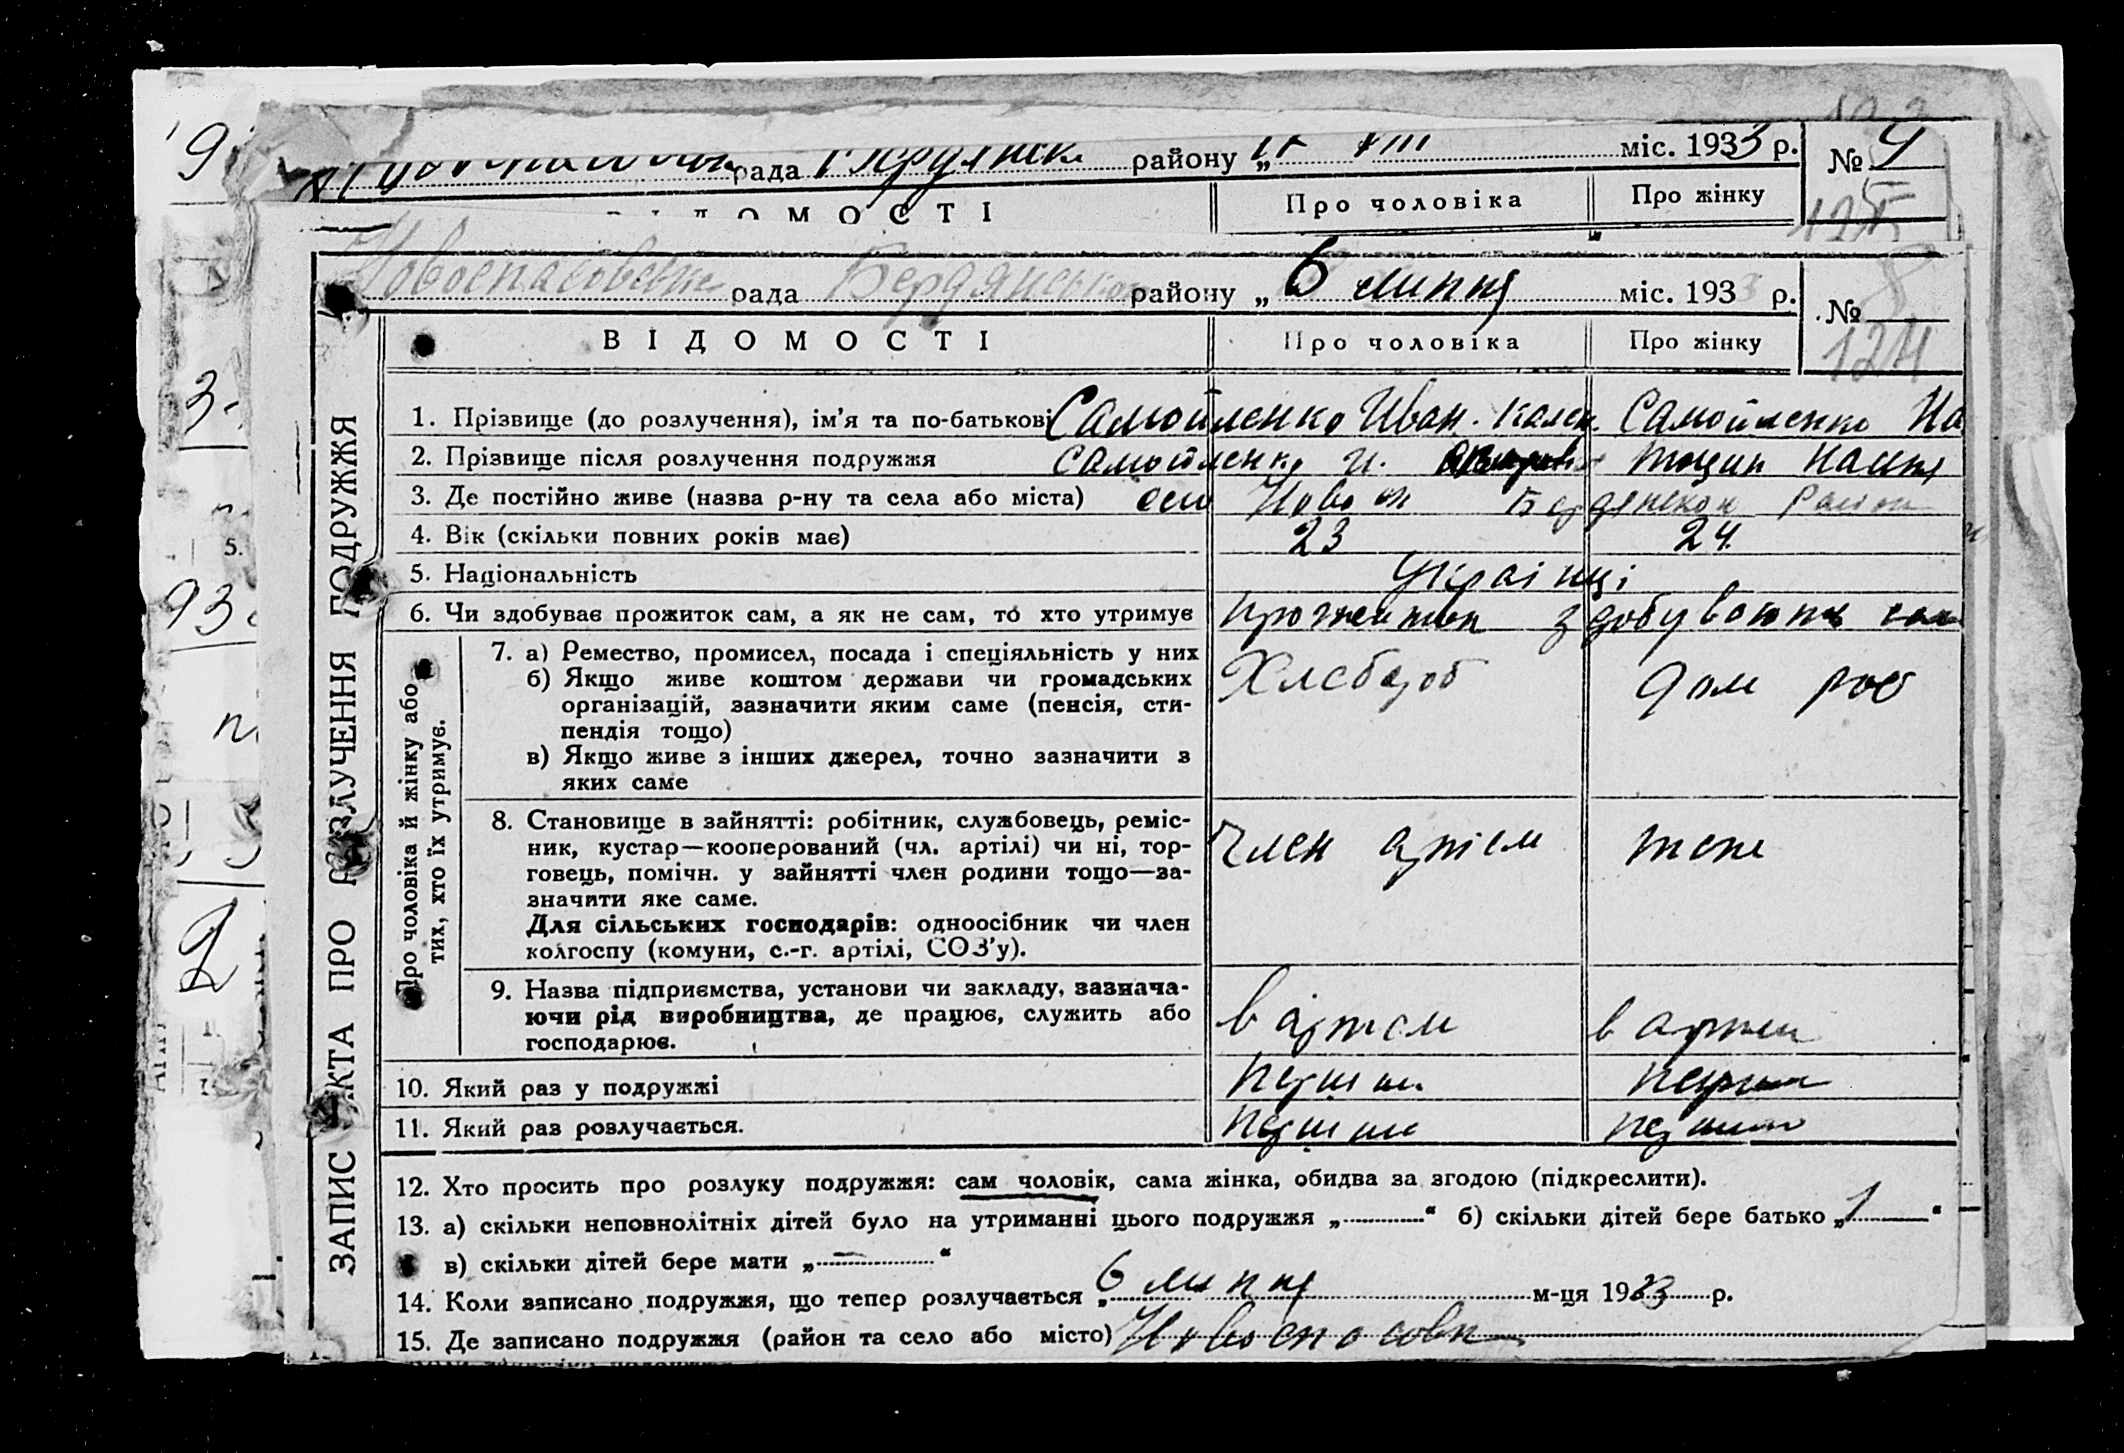 рада району „ VIII міс. 1933 р. № 4
ВІДОМОСТІ Про чоловіка Про жінку 125
Новоспасовська рада Бердянського району „ 6 липня міс. 1933 р. № 8
ВІДОМОСТІ Про чоловіка Про жінку 124
1. Прізвище (до розлучення), ім'я та по-батькові Самойленко Иван. Самойленко На
2. Прізвище після розлучення подружжя Самойленко И.
3. Де постійно живе (назва р-ну та села або міста) село Ново Бердянской район
4. Вік (скільки повних років має) 23 24
5. Національність Українці
6. Чи здобуває прожиток сам, а як не сам, то хто утримує прожиток здобувають сам
7. а) Ремество, промисел, посада і спеціяльність у них Хлебороб дом роб
б) Якщо живе коштом держави чи громадських
організацій, зазначити яким саме (пенсія, сти-
пендія тощо)
в) Якщо живе з інших джерел, точно зазначити з
яких саме
8. Становище в зайнятті: робітник, службовець, реміс- член артели тоже
ник, кустар—кооперований (чл. артілі) чи ні, тор-
говець, помічн. у зайнятті член родини тощо—за-
значити яке саме.
Для сільських господарів: одноосібник чи член
колгоспу (комуни, с.-г. артілі, СОЗ'у).
9. Назва підприємства, установи чи закладу, зазнача-
ючи рід виробництва, де працює, служить або в артели в артели
господарює.
10. Який раз у подружжі
11. Який раз розлучається.
12. Хто просить про розлуку подружжя: сам чоловік, сама жінка, обидва за згодою (підкреслити).
13. а) скільки неповнолітніх дітей було на утриманні цього подружжя „ “ б) скільки дітей бере батько „ 1 “
в) скільки дітей бере мати „ — “
14. Коли записано подружжя, що тепер розлучається „ 6 липня м-ця 1933 р.
15. Де записано подружжя (район та село або місто) Новоспасовк
ЗАПИС АКТА ПРО РОЗЛУЧЕННЯ ПОДРУЖЖЯ
Про чоловіка й жінку або
тих, хто їх утримує.